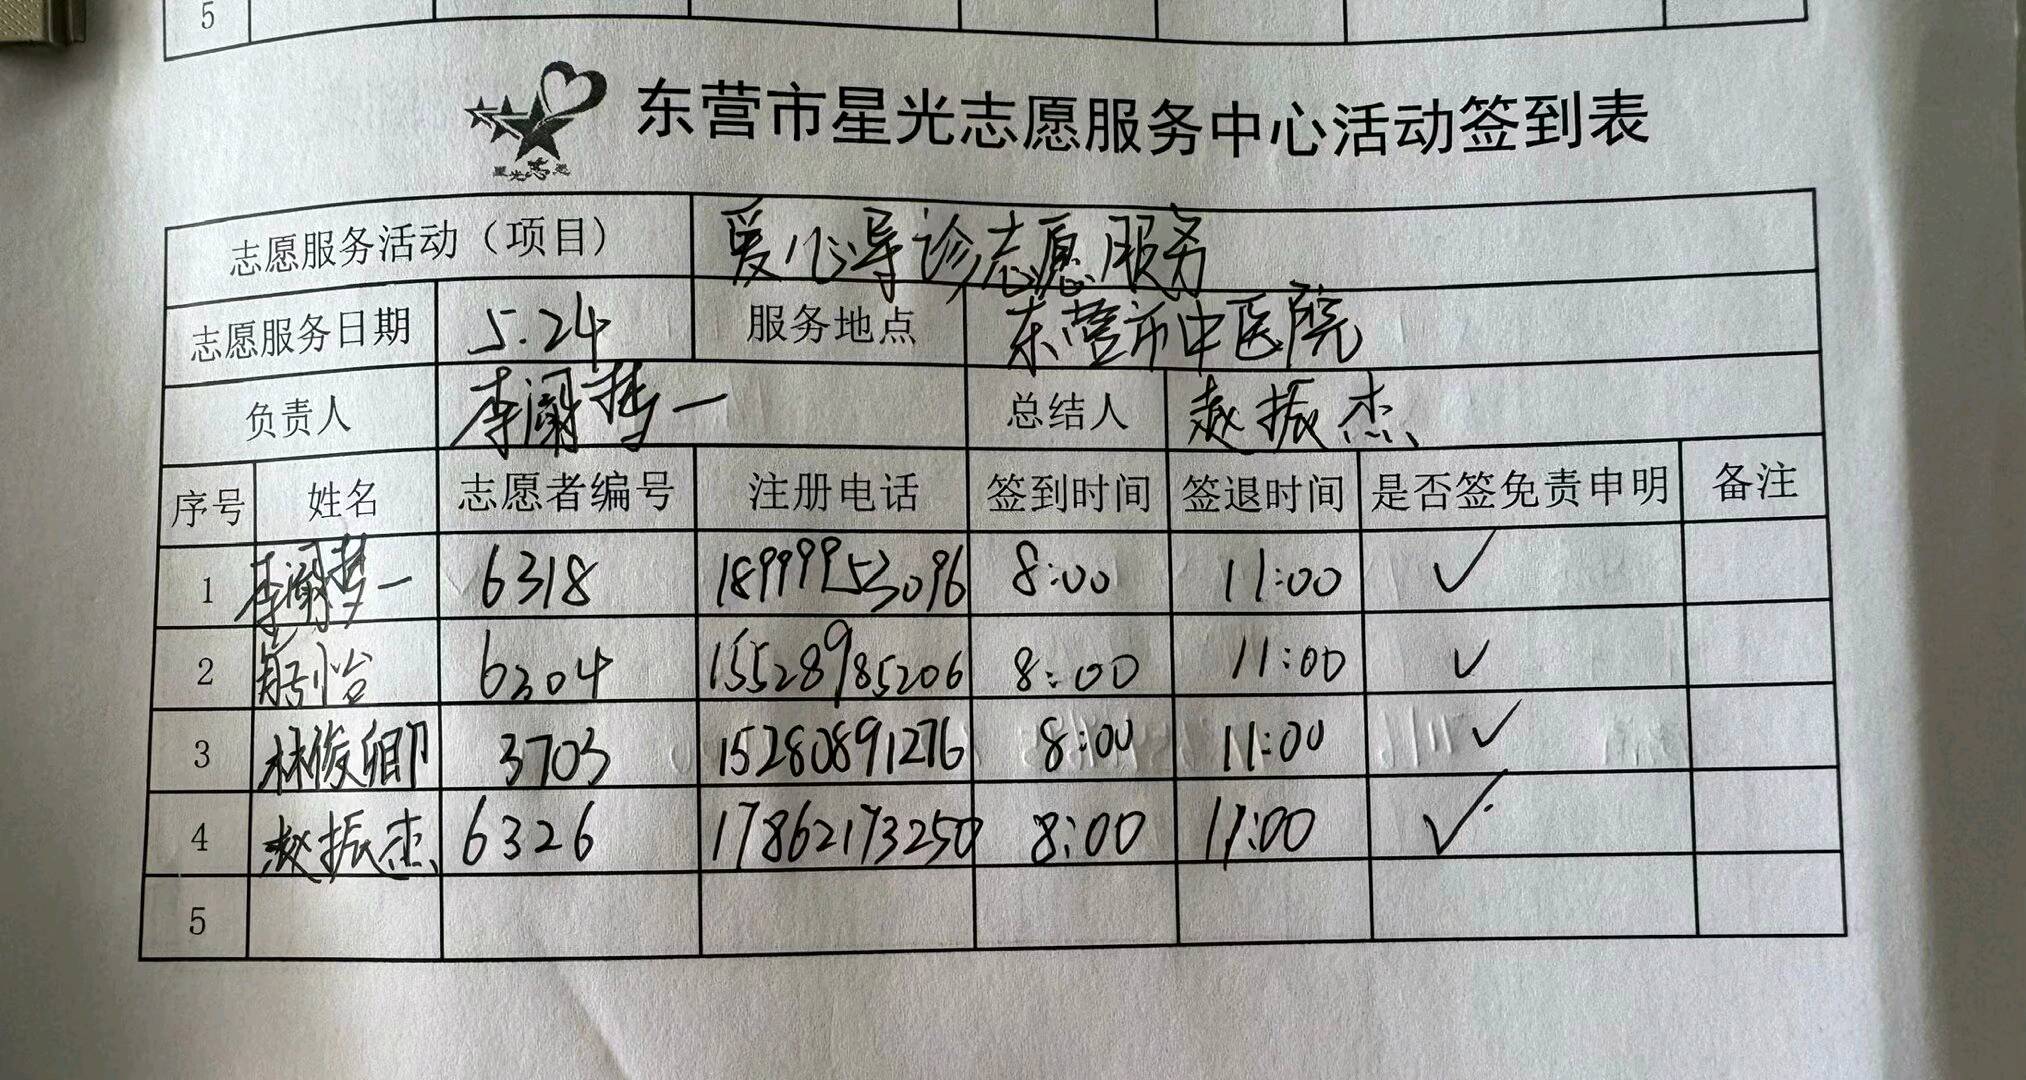 5
东营市星光志愿服务中心活动签到表
星光志愿
志愿服务活动（项目） 爱心导诊志愿服务
志愿服务日期 5.24 服务地点 东营市中医院
负责人 总结人 赵振杰
序号 姓名 志愿者编号 注册电话 签到时间 签退时间 是否签免责申明 备注
1 6318 18999953096 8:00 11:00 ✓
2 6304 15528985206 8:00 11:00 ✓
3 林俊卿 3703 15280891276 8:00 11:00 ✓
4 赵振杰 6326 17862173250 8:00 11:00 ✓
5